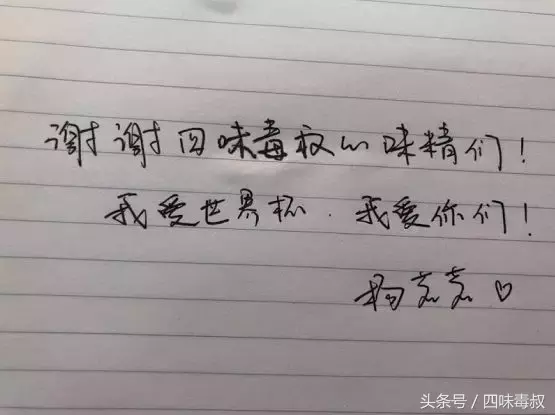 谢谢四味毒叔的味精们！
我爱世界杯．我爱你们！
杨芝芝♡
头条号／四味毒叔